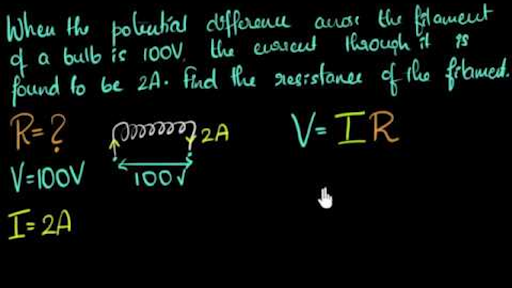 When the potential difference across the filament
of a bulb is 100V, the current through it is
found to be 2A. Find the resistance of the filament.
R=?
2A
V=IR
V=100V
100V
I=2A